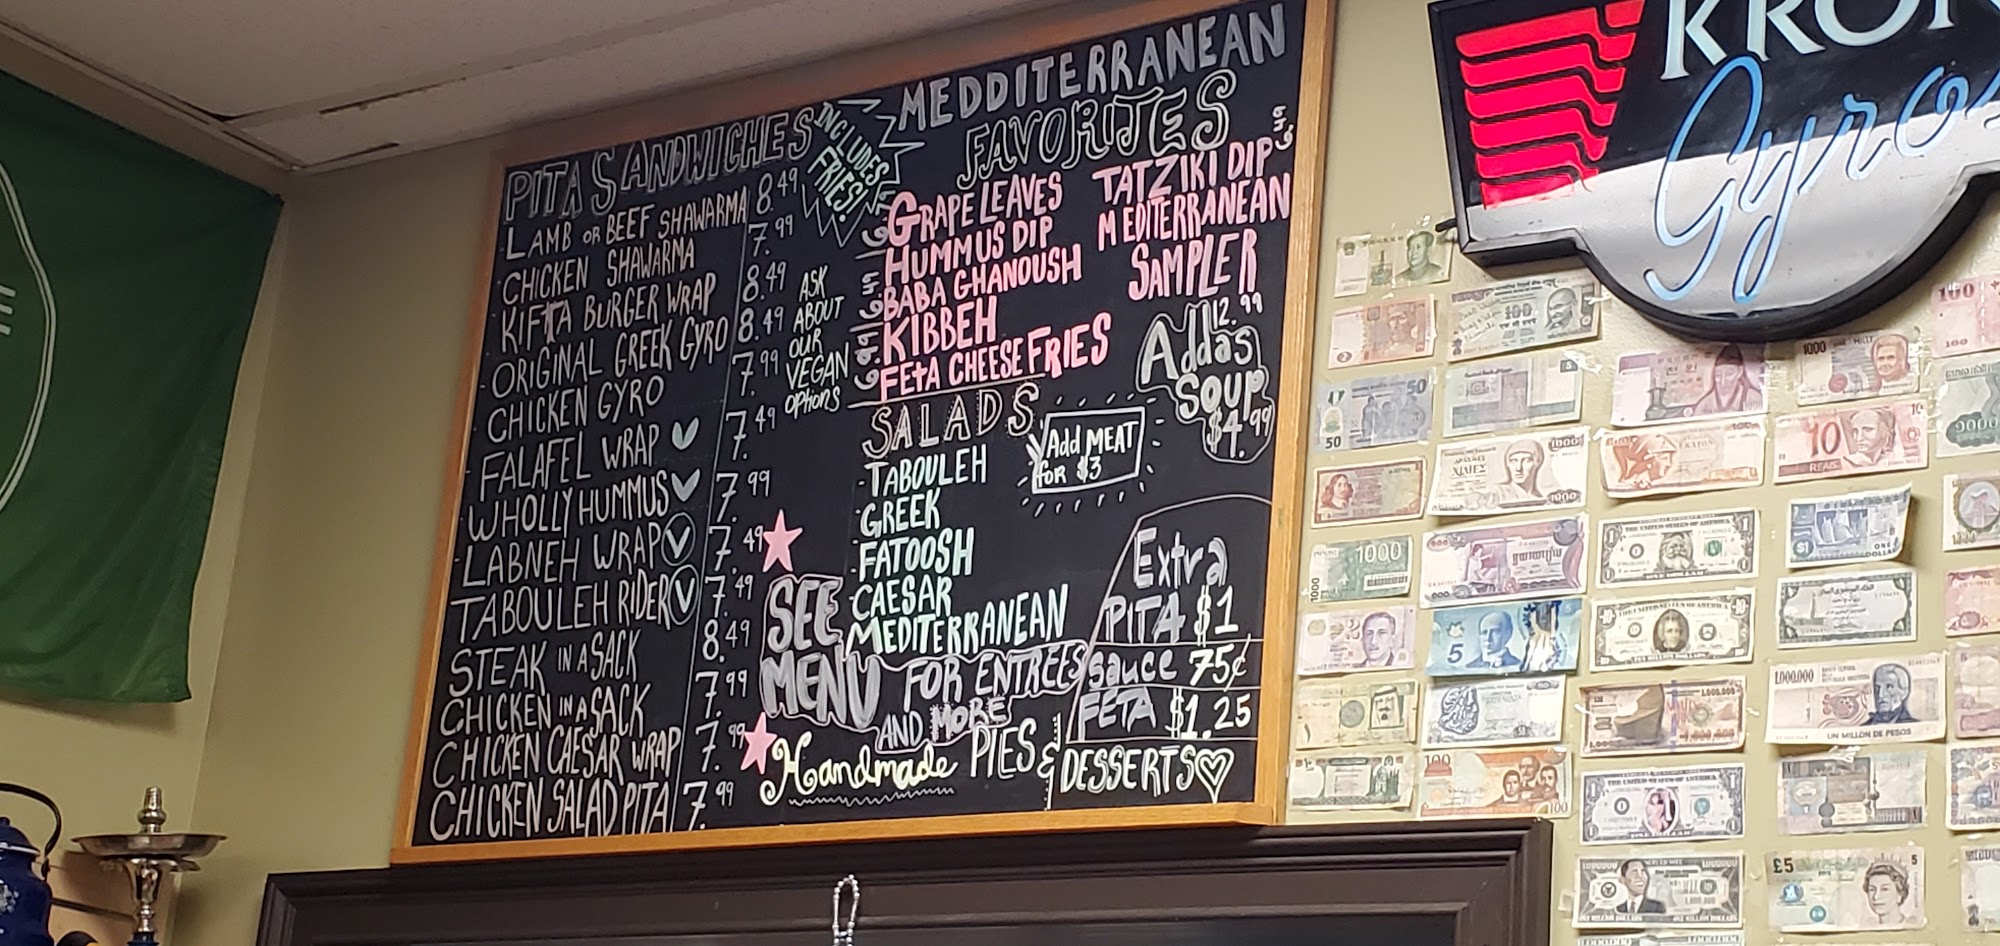 PITA SANDWICHES
INCLUDES
FRIES!
LAMB OR BEEF SHAWARMA 8.49
CHICKEN SHAWARMA 7.99
KIFTA BURGER WRAP 8.49
ORIGINAL GREEK GYRO 8.49
CHICKEN GYRO 7.99
FALAFEL WRAP 7.49
WHOLLY HUMMUS 7.99
LABNEH WRAP 7.49
TABOULEH RIDER 7.49
STEAK IN A SACK 8.49
CHICKEN IN A SACK 7.99
CHICKEN CAESAR WRAP 7.99
CHICKEN SALAD PITA 7.99
ASK
ABOUT
OUR
VEGAN
OPTIONS
MEDDITERRANEAN
FAVORITES
GRAPE LEAVES
HUMMUS DIP
BABA GHANOUSH 6.49
KIBBEH
FETA CHEESE FRIES 6.99
TATZIKI DIP
MEDITERRANEAN
SAMPLER
12.99
Addas
SOUP
$4.99
SALADS
Add MEAT
for $3
-TABOULEH
-GREEK
-FATOOSH
-CAESAR
MEDITERRANEAN
SEE
MENU FOR ENTREES
AND MORE
Handmade PIES &
DESSERTS
Extra
PITA $1
sauce 75¢
FETA $1.25
KRON
Gyros
100
50
50
1000
1000
10
REAIS
1000
1000
5
100
100
1,000,000
UN MILLON DE PESOS
THE UNITED STATES OF AMERICA
£5
5